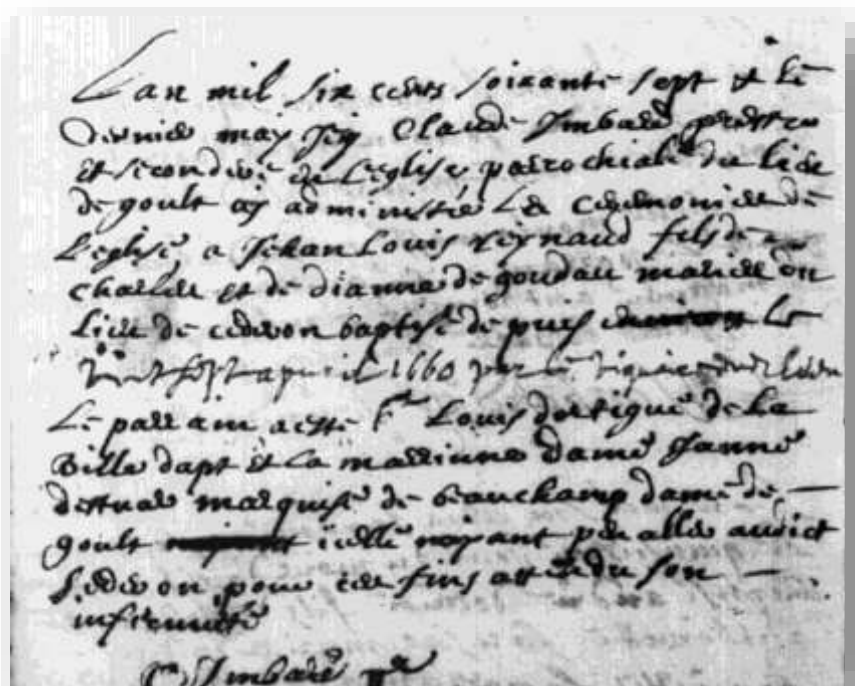 L an mil six cents soixante sept et le
dernier may Jey Claude Imbard prestre
et secondere de leglise parrochiale du lieu
de goult ay administré Les ceremonies de
Leglise a Jehan Louis reynaud fils de
charles et de dianne de goudau mariés du
Lieu de cederon baptisé de puis le
vint sept apvril 1660 par le dud lieu
Le parrain a esté Sr Louis dortigue de La
Ville dapt et La marrinne dame Janne
marquise de beauchamp dame de
goult icelle nayant peu aller audict
Sederon pour ces fins attendu son
infirmité
Imbard